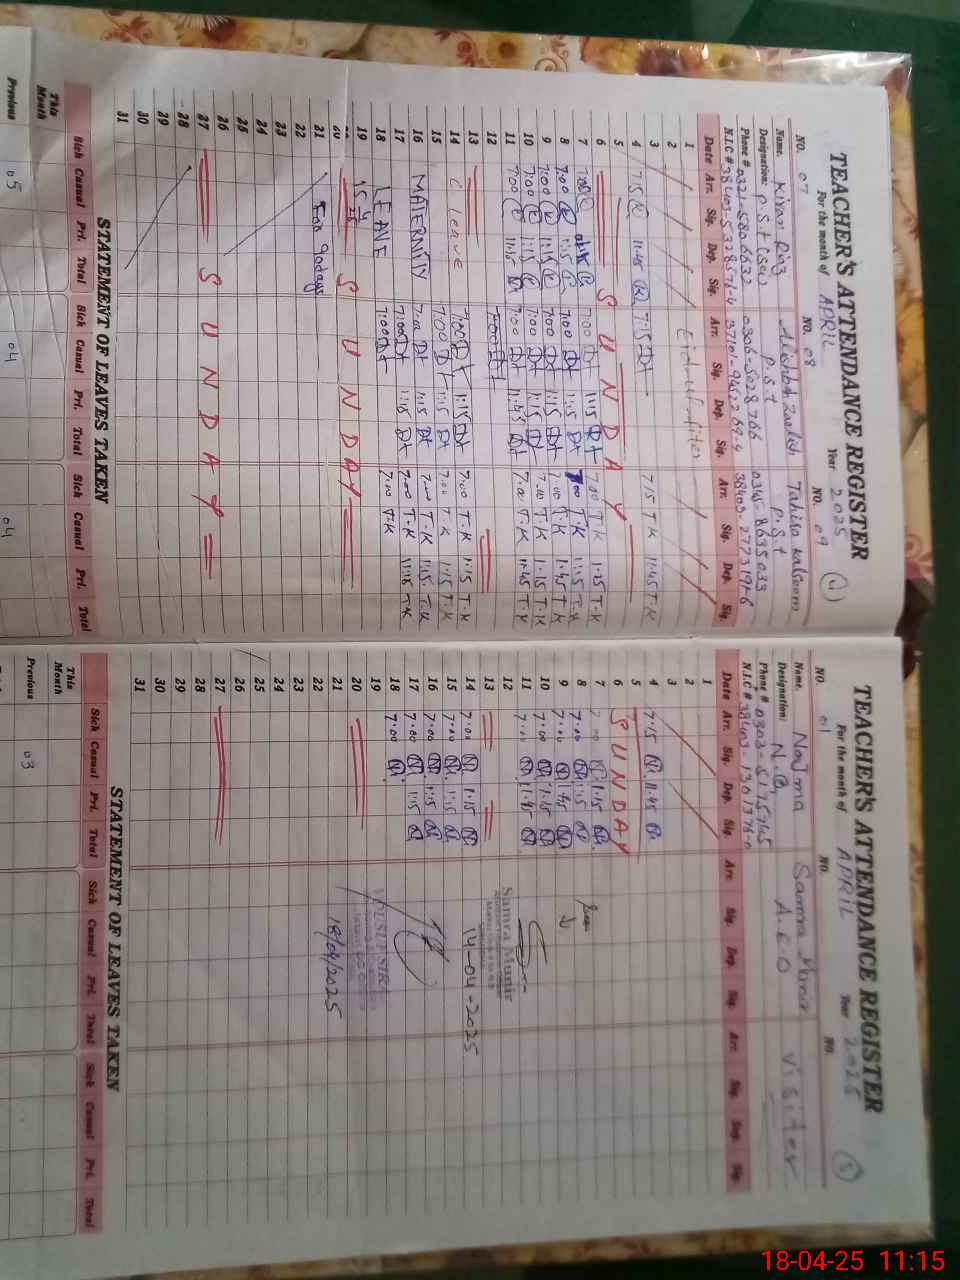 TEACHER'S ATTENDANCE REGISTER
For the month of APRIL Year 2025 (4)
NO. 07 NO. 08 NO. 09
Name. Kiran Riaz Tahira Kalsoom
Designation: P.S.T (SSE) P.S.T P.S.T
Phone # 0321-5806632 0306-5028766 0345-8635033
N.I.C #
Date Arr. Sig. Dep. Sig. Arr. Sig. Dep. Sig. Arr. Sig. Dep. Sig.
1
2 Eid-ul-fiter
3
4 7:15 K 11:45 K 7:15 7:15 T.K 11:45 T.K
5
6 SUNDAY
7 7:00 1:15 7:00 T.K 1:15 T.K
8 7:00 K 1:15 K 7:00 1:15 7:00 T.K 1:15 T.K
9 7:00 K 1:15 K 7:00 1:15 7:00 T.K 1:45 T.K
10 7:00 K 1:15 K 7:00 1:15 7:00 T.K 1:15 T.K
11 7:00 K 11:15 K 7:00 11:45 7:00 T.K 11:45 T.K
12 7:00
13
14 C leave 7:00 1:15 7:00 T.K 1:15 T.K
15 7:00 1:15 7:00 T.K 1:15 T.K
16 MATERNITY 7:00 1:15 7:00 T.K 1:15 T.K
17 7:00 1:15 7:00 T.K 11:15 T.K
18 LEAVE 7:00 7:00 T.K
19 15-4-25
20 SUNDAY
21 For 90days
22
23
24
25
26
27 SUNDAY
28
29
30
31
STATEMENT OF LEAVES TAKEN
Sick Casual Pri. Total Sick Casual Pri. Total Sick Casual Pri. Total
This Month
Previous 05 04 04
TEACHER'S ATTENDANCE REGISTER
For the month of APRIL Year 2025 (5)
NO. 01 NO. NO.
Name. Najma Samra Munir Visiter
Designation: N.Q A.E.O
Phone # 0303-5175765
N.I.C # 38403-1301376-0
Date Arr. Sig. Dep. Sig. Arr. Sig. Dep. Sig. Arr. Sig. Dep. Sig.
1
2
3
4 7:15 N 11:45 N
5
6 SUNDAY
7 7:00 N 1:15 N
8 7:00 N 1:15 N
9 7:00 N 1:45 N
10 7:00 N 1:15 N
11 7:00 N 11:45 N
12 Samra Munir
13
14 7:00 N 1:15 N 14-04-2025
15 7:00 N 1:15 N
16 7:00 N 1:15 N
17 7:00 N 1:15 N
18 7:00 N
19
20
21 18/04/2025
22
23
24
25
26
27
28
29
30
31
STATEMENT OF LEAVES TAKEN
Sick Casual Pri. Total Sick Casual Pri. Total Sick Casual Pri. Total
This Month
Previous 03
18-04-25 11:15